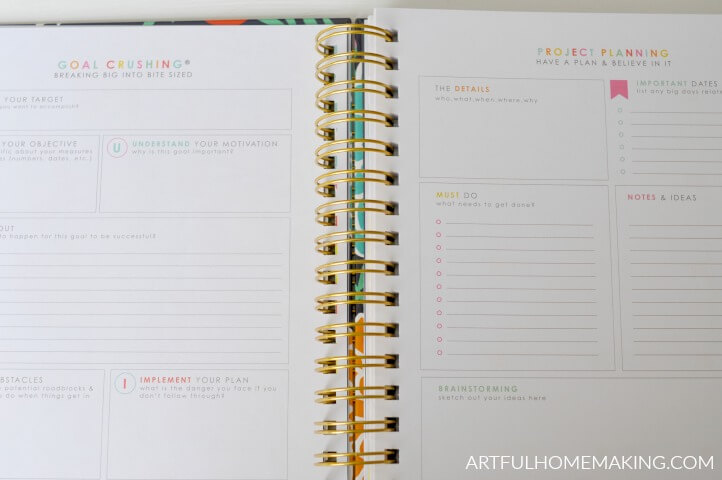 GOAL CRUSHING®
BREAKING BIG INTO BITE SIZED
YOUR TARGET
you want to accomplish?
YOUR OBJECTIVE
about your measures
(numbers, dates, etc..)
U UNDERSTAND YOUR MOTIVATION
why is this goal important?
OUT
to happen for this goal to be successful?
potential roadblocks &
do when things get in
I IMPLEMENT YOUR PLAN
what is the danger you face if you
don't follow through?
PROJECT PLANNING
HAVE A PLAN & BELIEVE IN IT
THE DETAILS
who,what,when,where,why
IMPORTANT DATES
list any big days
MUST DO
what needs to get done?
NOTES & IDEAS
BRAINSTORMING
sketch out your ideas here
ARTFULHOMEMAKING.COM